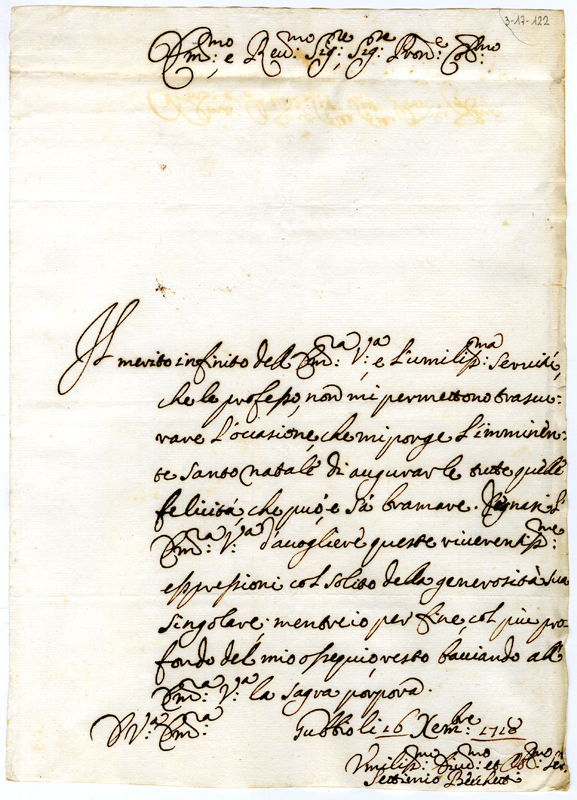 3-17-122
Em:mo e Reu:mo Sig:re Sig:re Pron:e Col:mo
Il merito infinito dell Em:za V:ra e l'umiliss:ma seruitú,
che le professo, non mi permettono trascu:
rare l'occasione, che mi porge l'imminen:
te santo natale di augurarle tutte quelle
felicitá, che può, e sá bramare. Degnasi l'
Em:za V:ra d'accogliere queste riuerentiss:me
espressioni col solito della generositá sua
singolare; mentre io per fine, col più pro:
fondo del mio ossequio, resto baciando all
Em:za V:ra la sagra porpora.
D V:ra Em:za Gubbio li 16 Xem:bre 1718
Vmiliss:mo Diuo:mo et Ob:mo Ser: